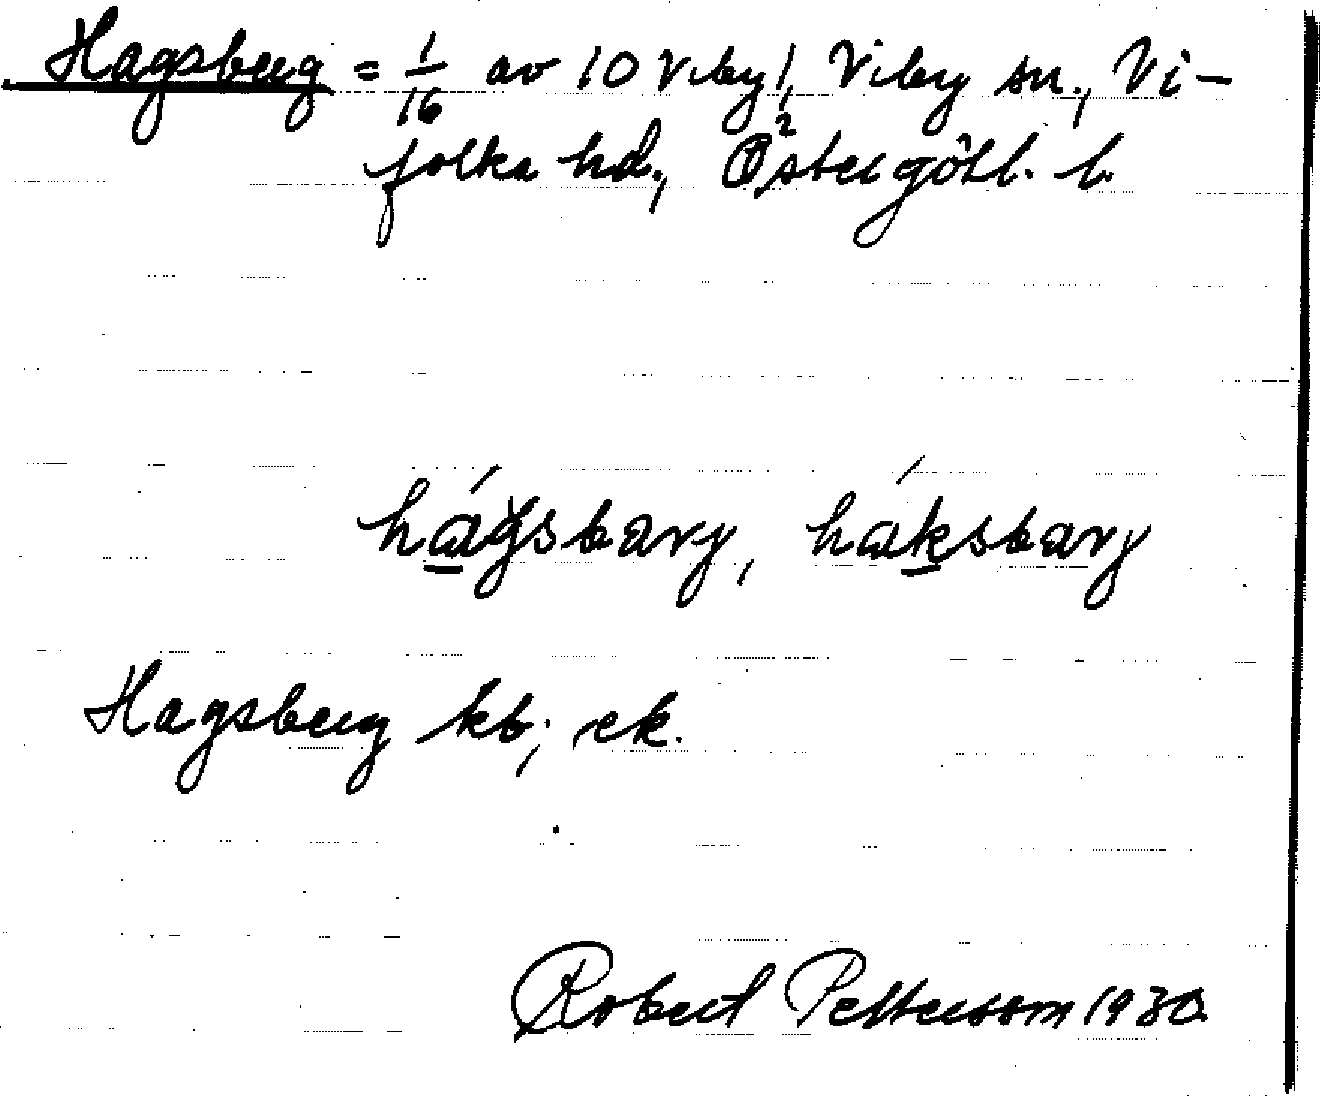 Hagsberg = 1/16 av 10 Viby 1, Viby sn., Vi-
folka hd., Östergötl. l.
hágsbarj, háksbarj
Hagsberg kb; ek.
Robert Pettersson 1930.